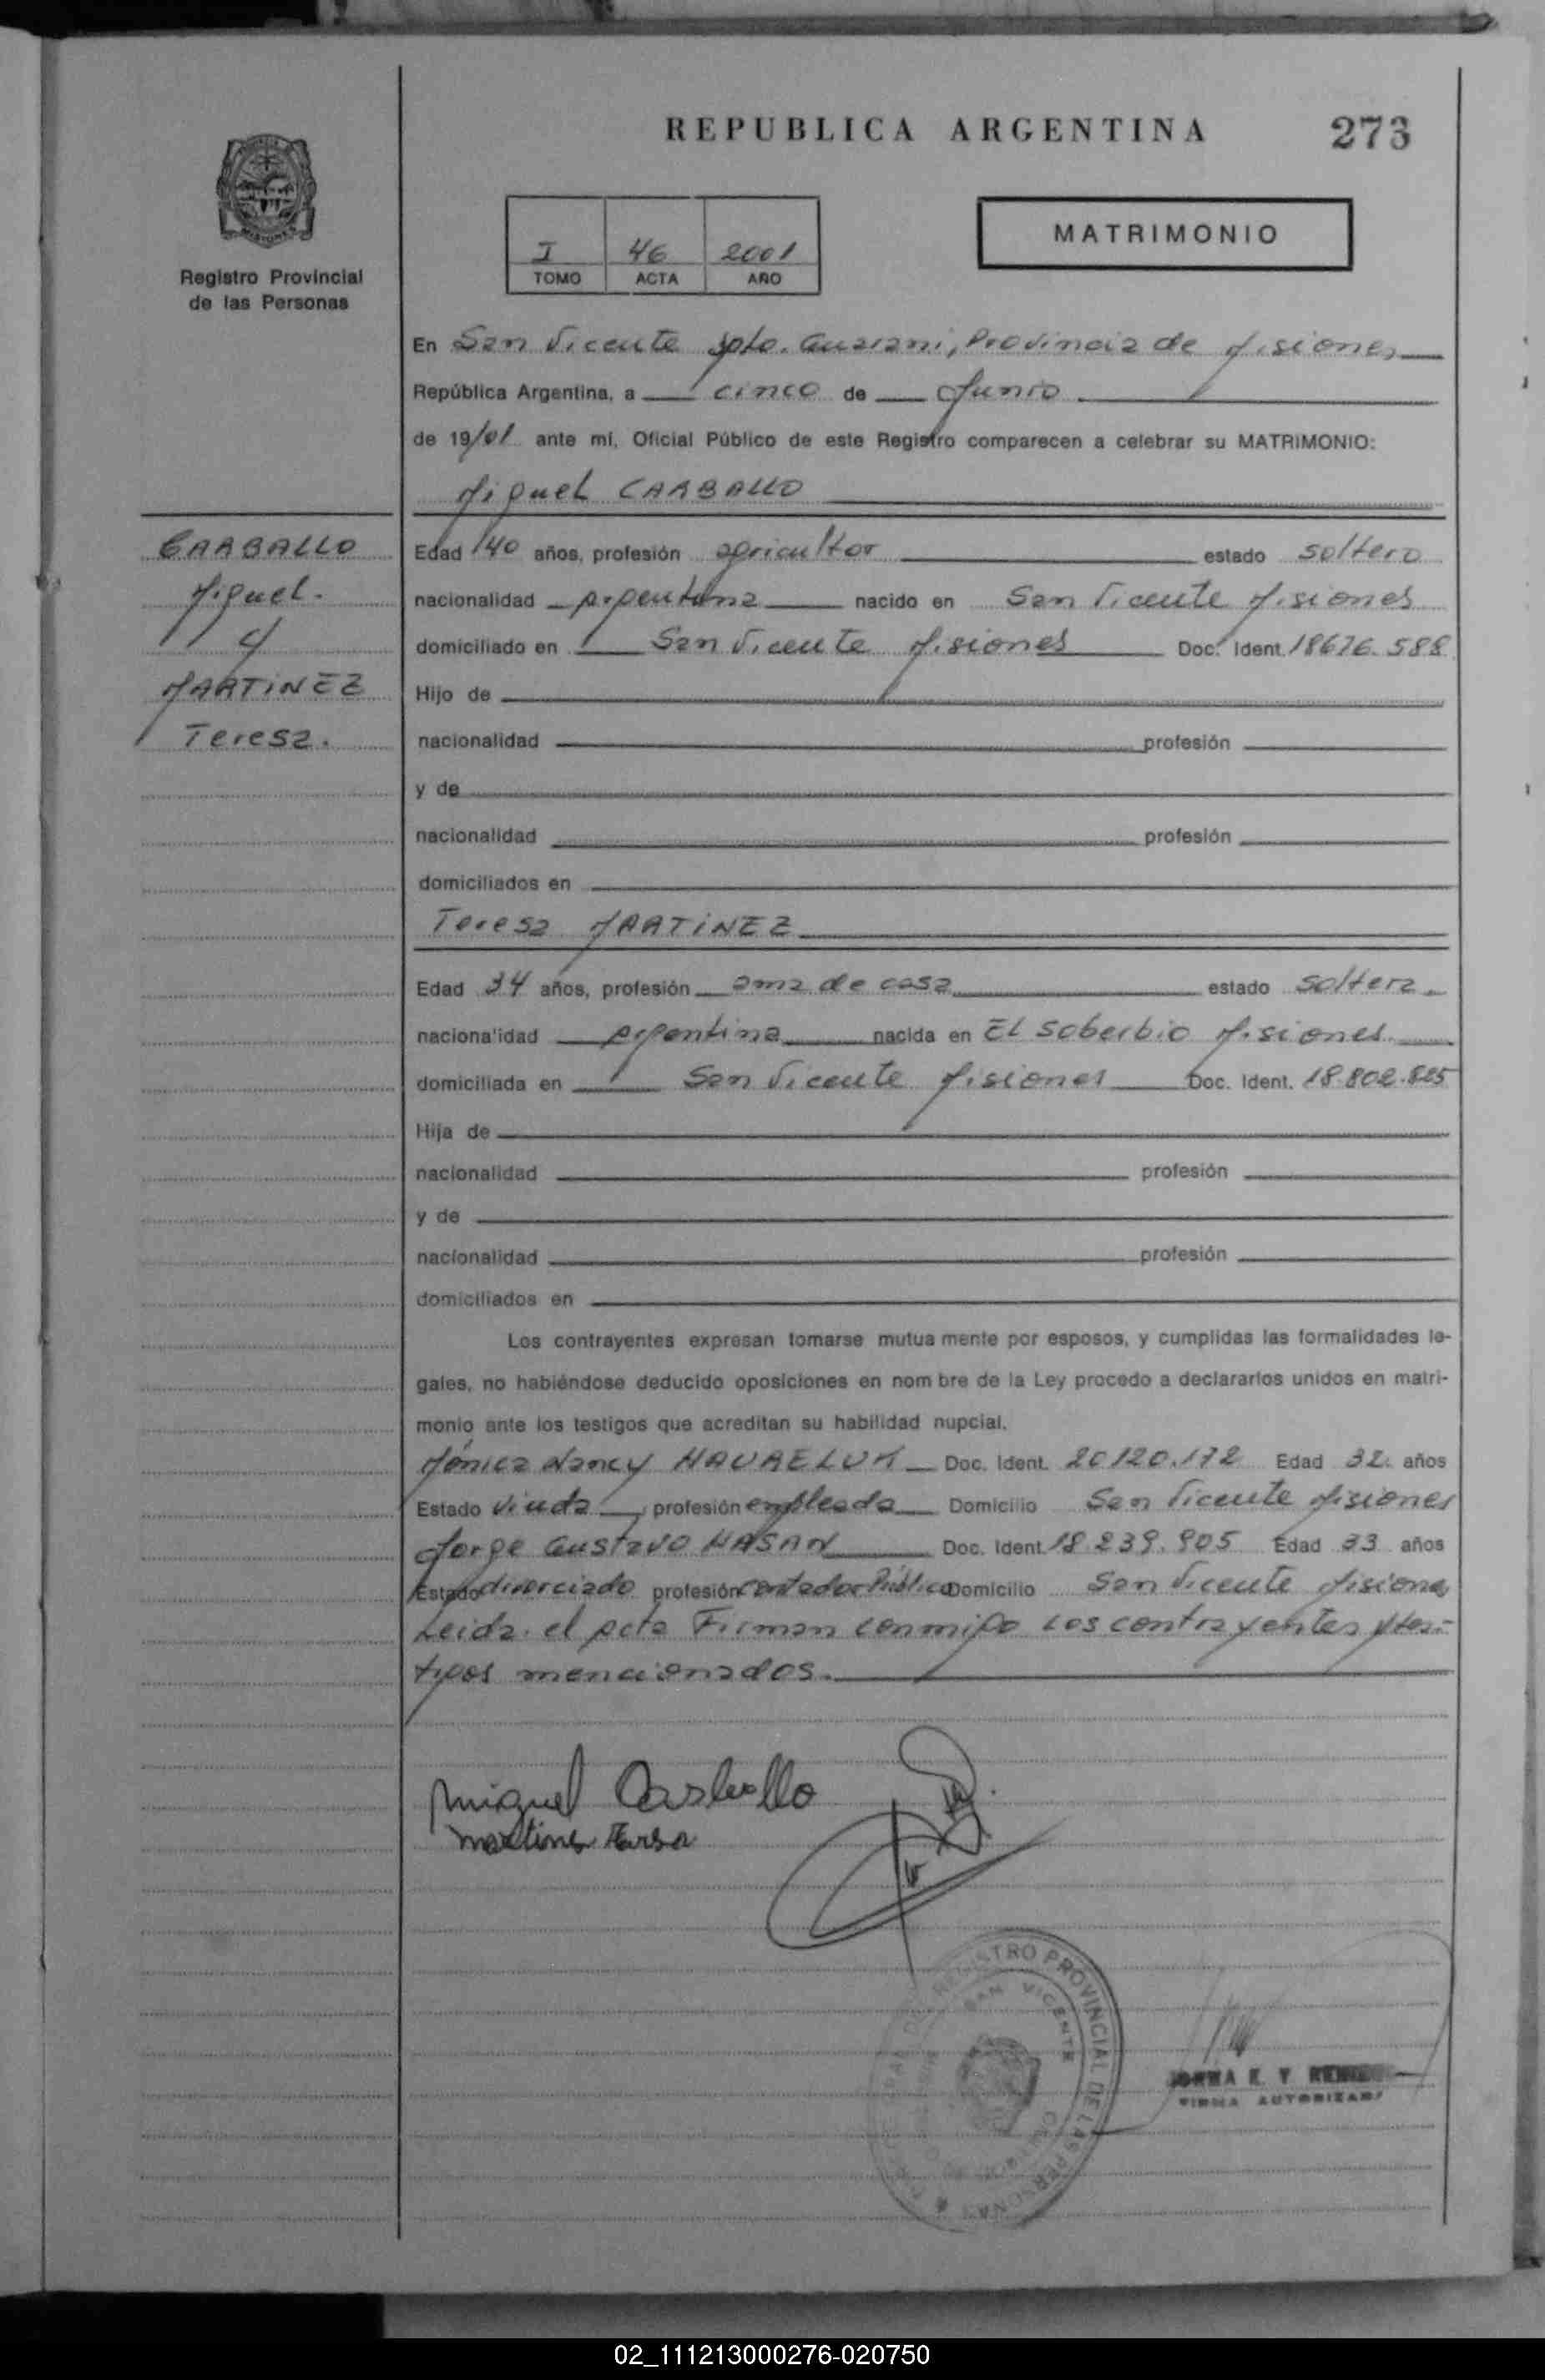 REPUBLICA ARGENTINA
273
MISIONES
Registro Provincial
de las Personas
I 46 2001
TOMO ACTA AÑO
MATRIMONIO
En San Vicente Dpto. Guarani, Provincia de Misiones
República Argentina, a cinco de Junio
de 19/01 ante mí, Oficial Público de este Registro comparecen a celebrar su MATRIMONIO:
Miguel CARBALLO
CARBALLO
Miguel.
y
MARTINEZ
Teresa.
Edad 40 años, profesión agricultor estado soltero
nacionalidad Argentina nacido en San Vicente Misiones
domiciliado en San Vicente Misiones Doc. Ident. 18676.588
Hijo de
nacionalidad profesión
y de
nacionalidad profesión
domiciliados en
Teresa MARTINEZ
Edad 34 años, profesión ama de casa estado soltera
naciona'idad Argentina nacida en El Soberbio Misiones
domiciliada en San Vicente Misiones Doc. Ident. 18.802.825
Hija de
nacionalidad profesión
y de
nacionalidad profesión
domiciliados en
Los contrayentes expresan tomarse mutua mente por esposos, y cumplidas las formalidades le-
gales, no habiéndose deducido oposiciones en nom bre de la Ley procedo a declararlos unidos en matri-
monio ante los testigos que acreditan su habilidad nupcial.
Mónica Nancy HAURELUK Doc. Ident. 20120.172 Edad 32. años
Estado Viuda profesión empleada Domicilio San Vicente Misiones
Jorge Gustavo HASAN Doc. Ident. 18.239.905 Edad 33 años
Estado divorciado profesión Contador Público Domicilio San Vicente Misiones
Leida el acta Firman conmigo los contrayentes y tes-
tigos mencionados.
Miguel Carballo
Martinez Teresa
REGISTRO PROVINCIAL DE LAS PERSONAS
SAN VICENTE
FIRMA AUTORIZADA
02_111213000276-020750